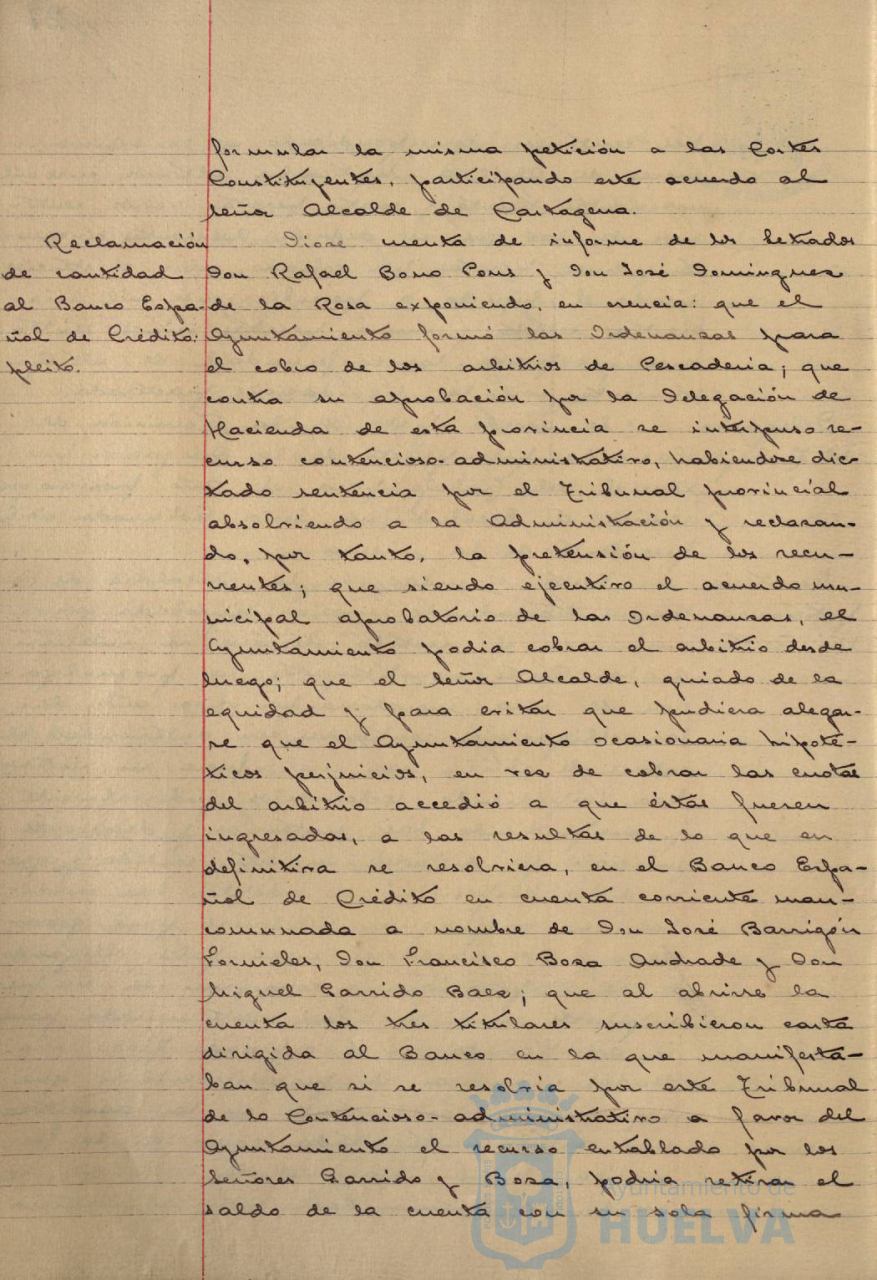 formular la misma petición a las Cortes
Constituyentes, participando este acuerdo al
señor Alcalde de Cartagena.
Reclamación
de cantidad
al Banco Espa-
ñol de Crédito:
pleito.
Diose cuenta de informe de los Letrados
Don Rafael Bono Pons y Don José Domínguez
de la Rosa exponiendo, en esencia: que el
Ayuntamiento formó las Ordenanzas para
el cobro de los arbitrios de Pescadería; que
contra su aprobación por la Delegación de
Hacienda de esta provincia se interpuso re-
curso contencioso-administrativo, habiéndose dic-
tado sentencia por el Tribunal provincial
absolviendo a la Administración y rechazan-
do, por tanto, la pretensión de los recu-
rrentes; que siendo ejecutivo el acuerdo mu-
nicipal aprobatorio de las Ordenanzas, el
Ayuntamiento podía cobrar el arbitrio desde
luego; que el señor Alcalde, guiado de la
equidad y para evitar que pudiera alegar-
se que el Ayuntamiento ocasionaria hipoté-
ticos perjuicios, en vez de cobrar las cuotas
del arbitrio accedió a que éstas fueren
ingresadas, a las resultas de lo que en
definitiva se resolviera, en el Banco Espa-
ñol de Crédito en cuenta corriente man-
comunada a nombre de Don José Barrigón
Fornieles, Don Francisco Boza Andrade y Don
Miguel Garrido Baez; que al abrirse la
cuenta los tres titulares suscribieron carta
dirigida al Banco en la que manifesta-
ban que si se resolvía por este Tribunal
de lo Contencioso-administrativo a favor del
Ayuntamiento el recurso entablado por los
señores Garrido y Boza, podria retirar el
saldo de la cuenta con su sola firma
Ayuntamiento de
HUELVA